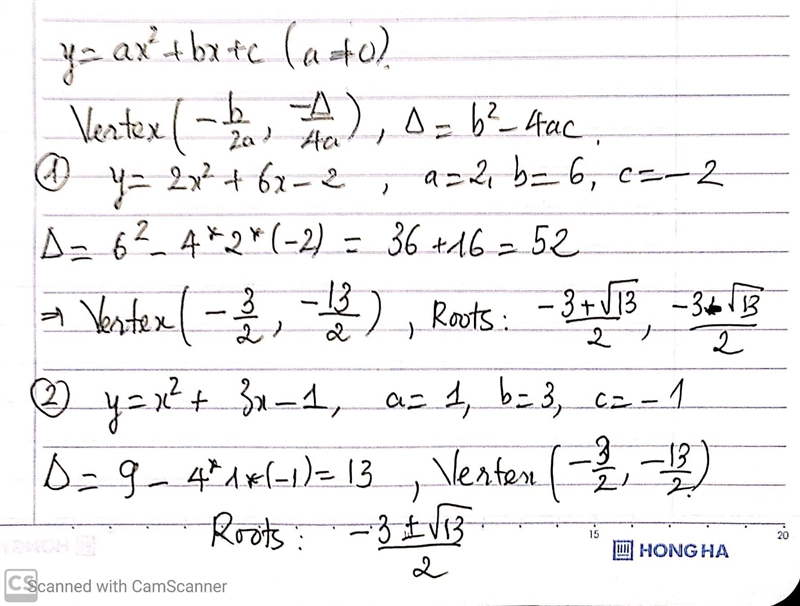 y = ax² + bx + c (a ≠ 0).
Vertex (-b/2a, -Δ/4a), Δ = b² - 4ac.
① y = 2x² + 6x - 2, a = 2, b = 6, c = -2
Δ = 6² - 4*2*(-2) = 36 + 16 = 52
⇒ Vertex (-3/2, -13/2), Roots: (-3+√13)/2, (-3-√13)/2
② y = x² + 3x - 1, a = 1, b = 3, c = -1
Δ = 9 - 4*1*(-1) = 13, Vertex (-3/2, -13/2)
Roots: (-3±√13)/2
15 20
HONG HA
CS Scanned with CamScanner